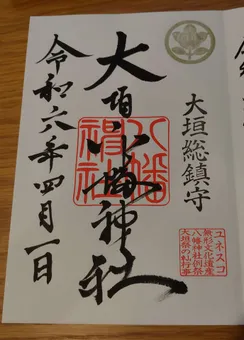 大垣総鎮守
ユネスコ
無形文化遺産
八幡神社例祭
大垣祭の𨋳行事
大垣八幡神社
八幡神社
令和六年四月一日